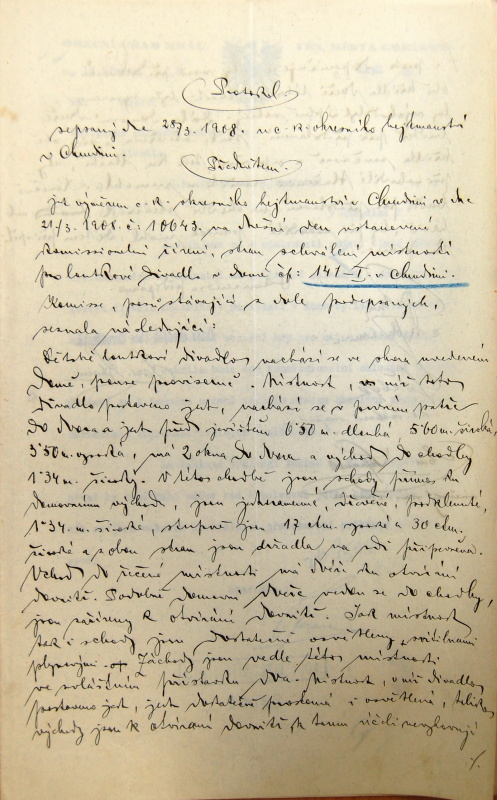 Protokol
sepsaný dne 28/3. 1908. u c. k. okresního hejtmanství
v Chrudimi.
Předmětem.
jest výnosem c. k. okresního hejtmanství v Chrudimi ze dne
21/3. 1908. č: 10643. na dnešní den ustanovené
komissionelní řízení, stran schválení místností
pro loutkové divadlo v domě čp: 141-I. v Chrudimi.
Komisse, pozůstávající z dole podepsaných,
seznala následující:
Dětské loutkové divadlo nachází se ve shora uvedeném
domě, pouze provisorně. Místnost, v níž toto
divadlo postaveno jest, nachází se v prvním patře
do dvora a jest před jevištěm 6.50 m. dlouhá, 5.60 m. široká,
3.50 m. vysoká, má 2 okna do dvora a východ do chodby
1.34 m. široký. V této chodbě jsou schody přímo ku
domovnímu východu, jsou jednoramenné, dřevěné, podklenuté,
1.34. m. široké, stupně jsou 17 ctm. vysoké a 30 ctm.
široké a po obou stran jsou držadla na zdi připevněna.
Vchod do řečené místnosti má dvéře ku otvírání
dovnitř. Podobně domovní dveře vedou se do chodby,
jsou zařízeny k otvírání dovnitř. Jak místnost
tak i schody jsou dostatečně osvětleny svítilnami
plynovými. Záchody jsou vedle této místnosti
ve zvláštním přístavku dva. Místnost, v níž divadlo
postaveno jest, jest dostatečně prostorná i osvětlená, telikož
východy jsou k otvírání dovnitř, k tomu účeli nevyhovují
./.